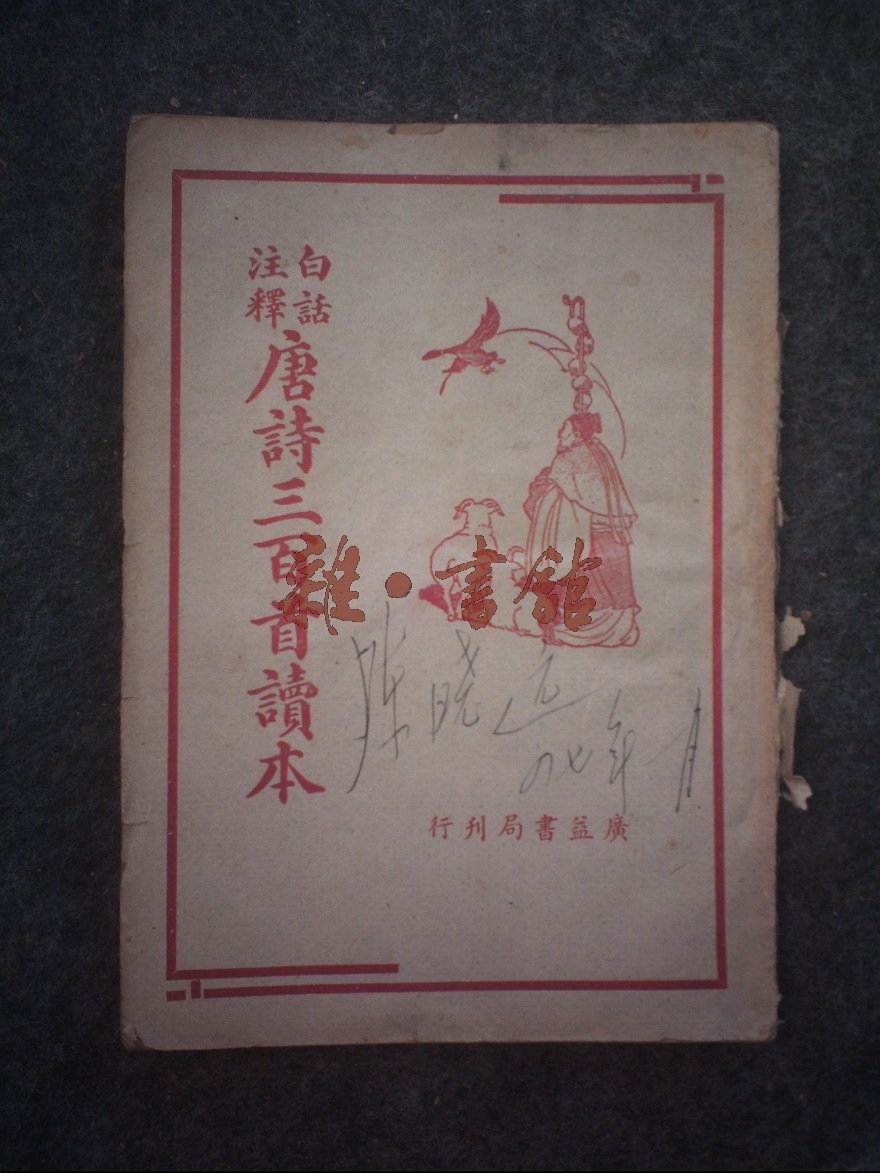 白話
注釋
唐詩三百首讀本
雜·書館
曉遠
年 月
廣益書局刊行